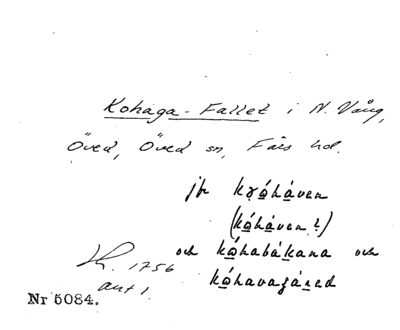 Kohaga-Fallet i N. Vång,
Öved, Öved sn, Färs hd.
jfr kǫ́háven
(kǫ́háven?)
och kǫ́habákana och
kǫ́havagáred
1756
Nr 5084.